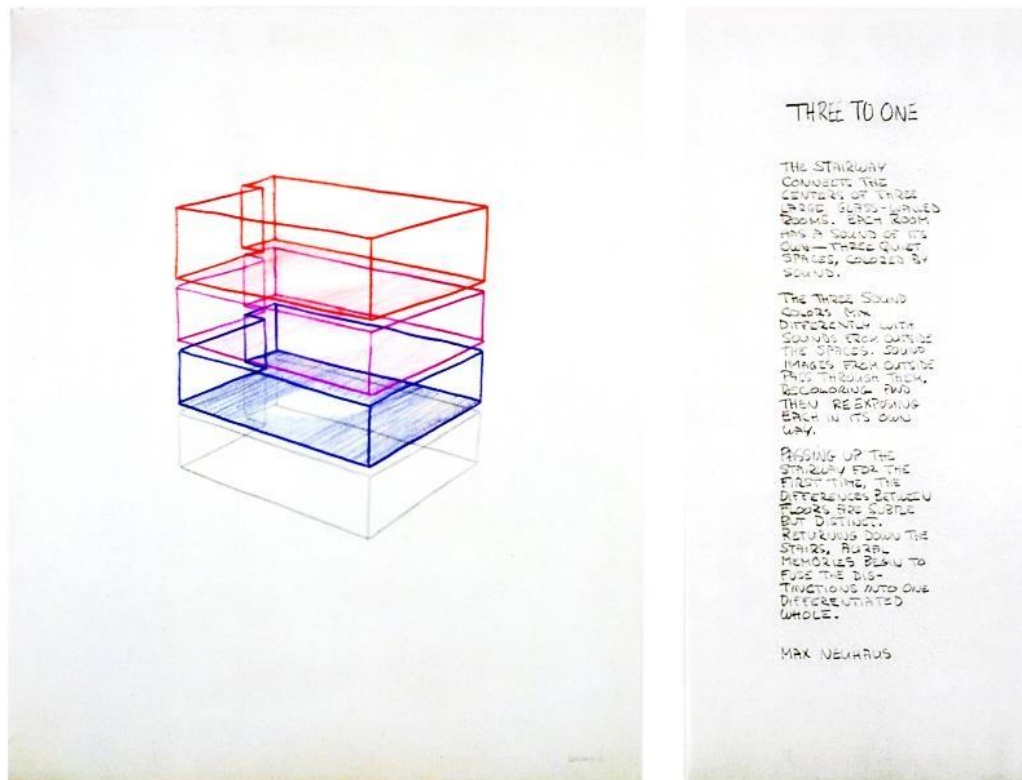 THREE TO ONE
THE STAIRWAY
CONNECTS THE
CENTERS OF THREE
LARGE GLASS-WALLED
ROOMS. EACH ROOM
HAS A SOUND OF ITS
OWN—THREE QUIET
SPACES, COLORED BY
SOUND.
THE THREE SOUND
COLORS MIX
DIFFERENTLY WITH
SOUNDS FROM OUTSIDE
THE SPACES. SOUND
IMAGES FROM OUTSIDE
PASS THROUGH THEM,
RECOLORING AND
THEN REEXPOSING
EACH IN ITS OWN
WAY.
PASSING UP THE
STAIRWAY FOR THE
FIRST TIME, THE
DIFFERENCES BETWEEN
FLOORS ARE SUBTLE
BUT DISTINCT.
RETURNING DOWN THE
STAIRS, AURAL
MEMORIES BEGIN TO
FUSE THE DIS-
TINCTIONS INTO ONE
DIFFERENTIATED
WHOLE.
MAX NEUHAUS